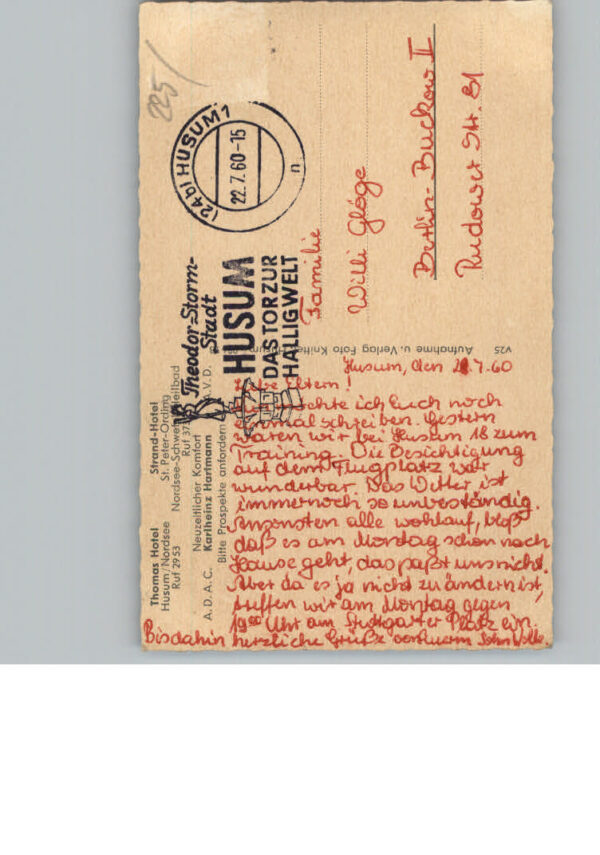 225/
(24b) HUSUM 1
22.7.60-15
n
Theodor-Storm-
Stadt
HUSUM
DAS TOR ZUR
HALLIGWELT
Familie
Willi Glöge
Berlin-Buckow II
Rudower Str. 81
Thomas Hotel
Husum/Nordsee
Ruf 2953
Strand-Hotel
St. Peter-Ording
Nordsee-Schwefelheilbad
Ruf
Neuzeitlicher Komfort
A.D.A.C. Karlheinz Hartmann A.V.D.
Bitte Prospekte anfordern
V25 Aufnahme u. Verlag Foto Knittel, Husum
Husum, den 21.7.60
Liebe Eltern!
möchte ich Euch noch
einmal schreiben. Gestern
waren wir bei Husum 18 zum
Training. Die Besichtigung
auf dem Flugplatz war
wunderbar. Das Wetter ist
immernoch so unbeständig.
Ansonsten alle wohlauf, bloß
daß es am Montag schon nach
Hause geht, das paßt uns nicht.
Aber da es ja nicht zu ändern ist,
treffen wir am Montag gegen
19⁰⁰ Uhr am Stuttgarter Platz ein.
Bis dahin herzliche Grüße von Eurem Sohn